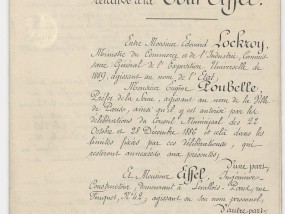 relative à la Tour Eiffel.
Entre Monsieur Edouard Lockroy,
Ministre du Commerce et de l'Industrie, Commis-
saire Général de l'Exposition Universelle de
1889, agissant au nom de l'État;
Monsieur Eugène Poubelle,
Préfet de la Seine, agissant au nom de la Ville
de Paris, ainsi qu'il y est autorisé par les
délibérations du Conseil Municipal des 22
Octobre et 28 Décembre 1886 et cela dans les
limites fixées par ces délibérations, qui
resteront annexées aux présentes;
D'une part,
Et Monsieur Eiffel, Ingénieur-
Constructeur, demeurant à Levallois-Perret, rue
Fouquet, N° 42, agissant en son nom personnel,
D'autre part,